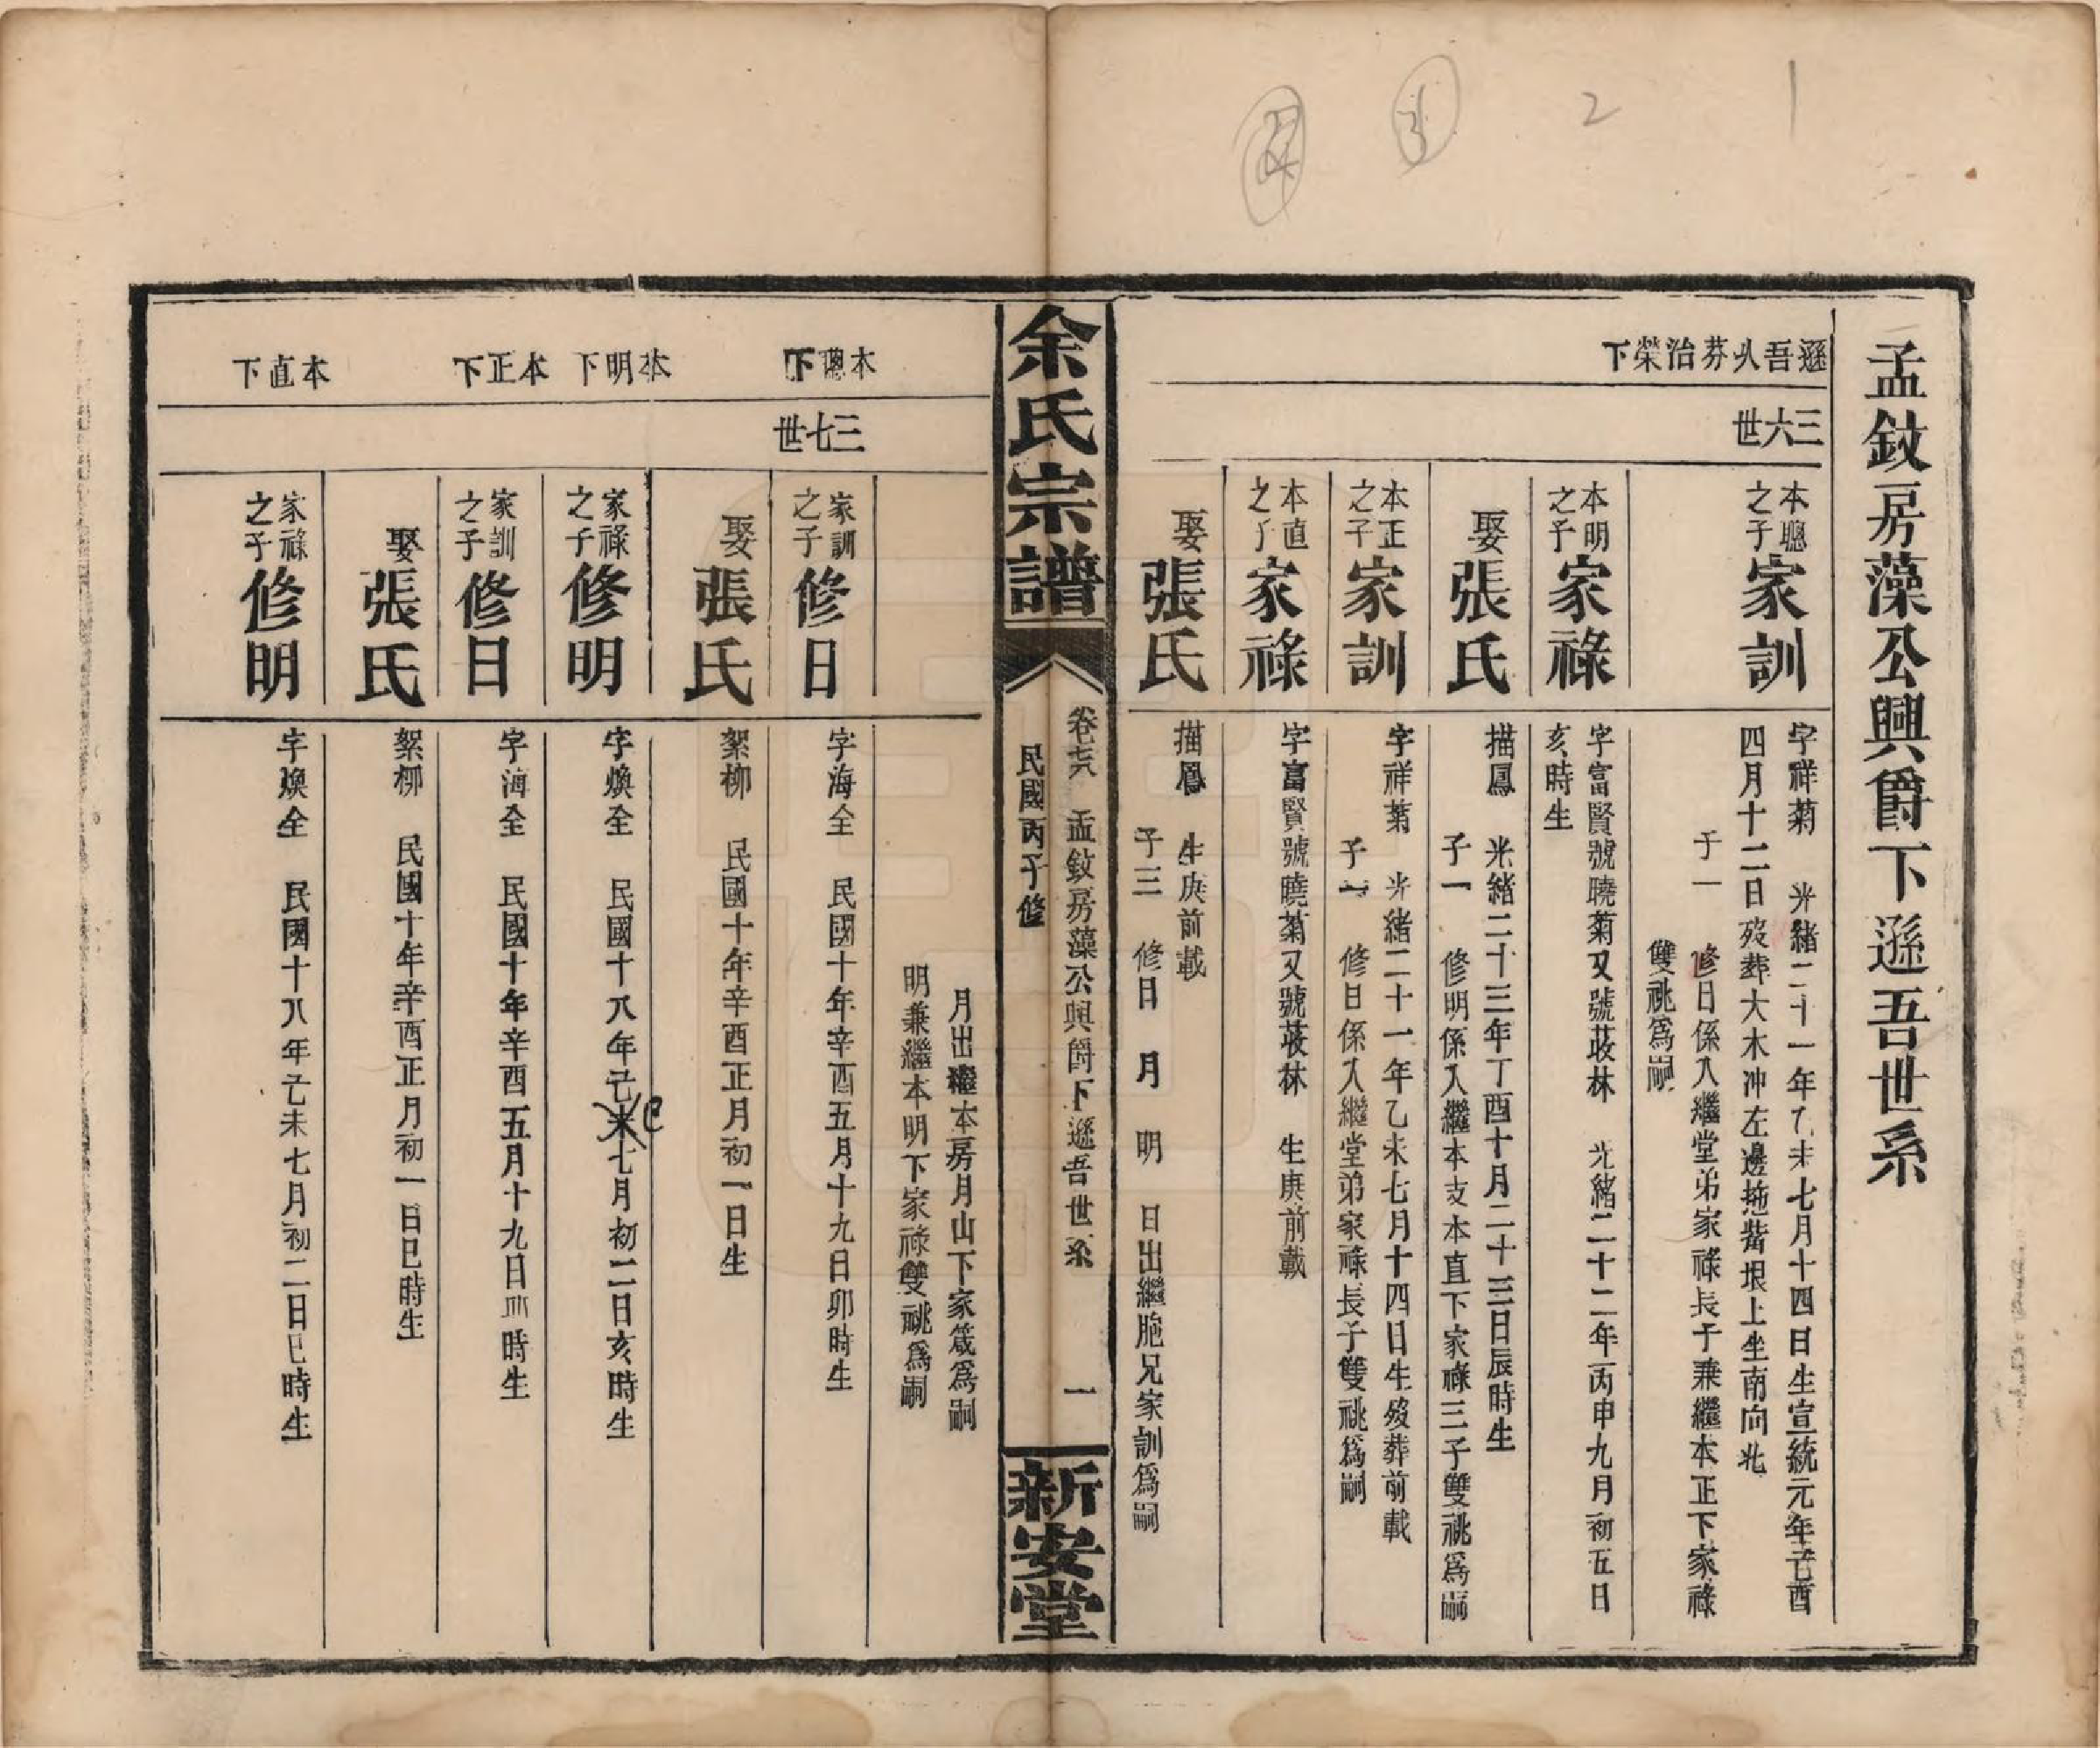 1
2
3
4
孟鈘房藻公興爵下遜吾世系
遜吾从芬治榮下
三六世
本聰之子家訓
字祥菊 光緒二十一年乙未七月十四日生宣統元年己酉
四月十二日歿葬大木冲左邊拖 垠上坐南向北
子一 修日係入繼堂弟家祿長子兼繼本正下家祿
雙祧爲嗣
本明之子家祿
字富賢號曉菊又號荍林 光緒二十二年丙申九月初五日
亥時生
娶張氏
描鳳 光緒二十三年丁酉十月二十三日辰時生
子一 修明係入繼本支本直下家祿三子雙祧爲嗣
本正之子家訓
字祥菊 光緒二十一年乙未七月十四日生歿葬前載
子一 修日係入繼堂弟家祿長子雙祧爲嗣
本直之子家祿
字富賢號曉菊又號荍林 生庚前載
娶張氏
描鳳 生庚前載
子三 修日 月 明 日出繼胞兄家訓爲嗣
余氏宗譜
卷七六 孟鈘房藻公興爵下遜吾世系 一
民國丙子修
新安堂
月出繼本房月山下家箴爲嗣
明兼繼本明下家祿雙祧爲嗣
本聰下
三七世
家訓之子修日
字海全 民國十年辛酉五月十九日卯時生
娶張氏
絮柳 民國十年辛酉正月初一日生
本明下
家祿之子修明
字煥全 民國十八年己未七月初二日亥時生
巳
本正下
家訓之子修日
字海全 民國十年辛酉五月十九日卯時生
娶張氏
絮柳 民國十年辛酉正月初一日巳時生
本直下
家祿之子修明
字煥全 民國十八年己未七月初二日巳時生